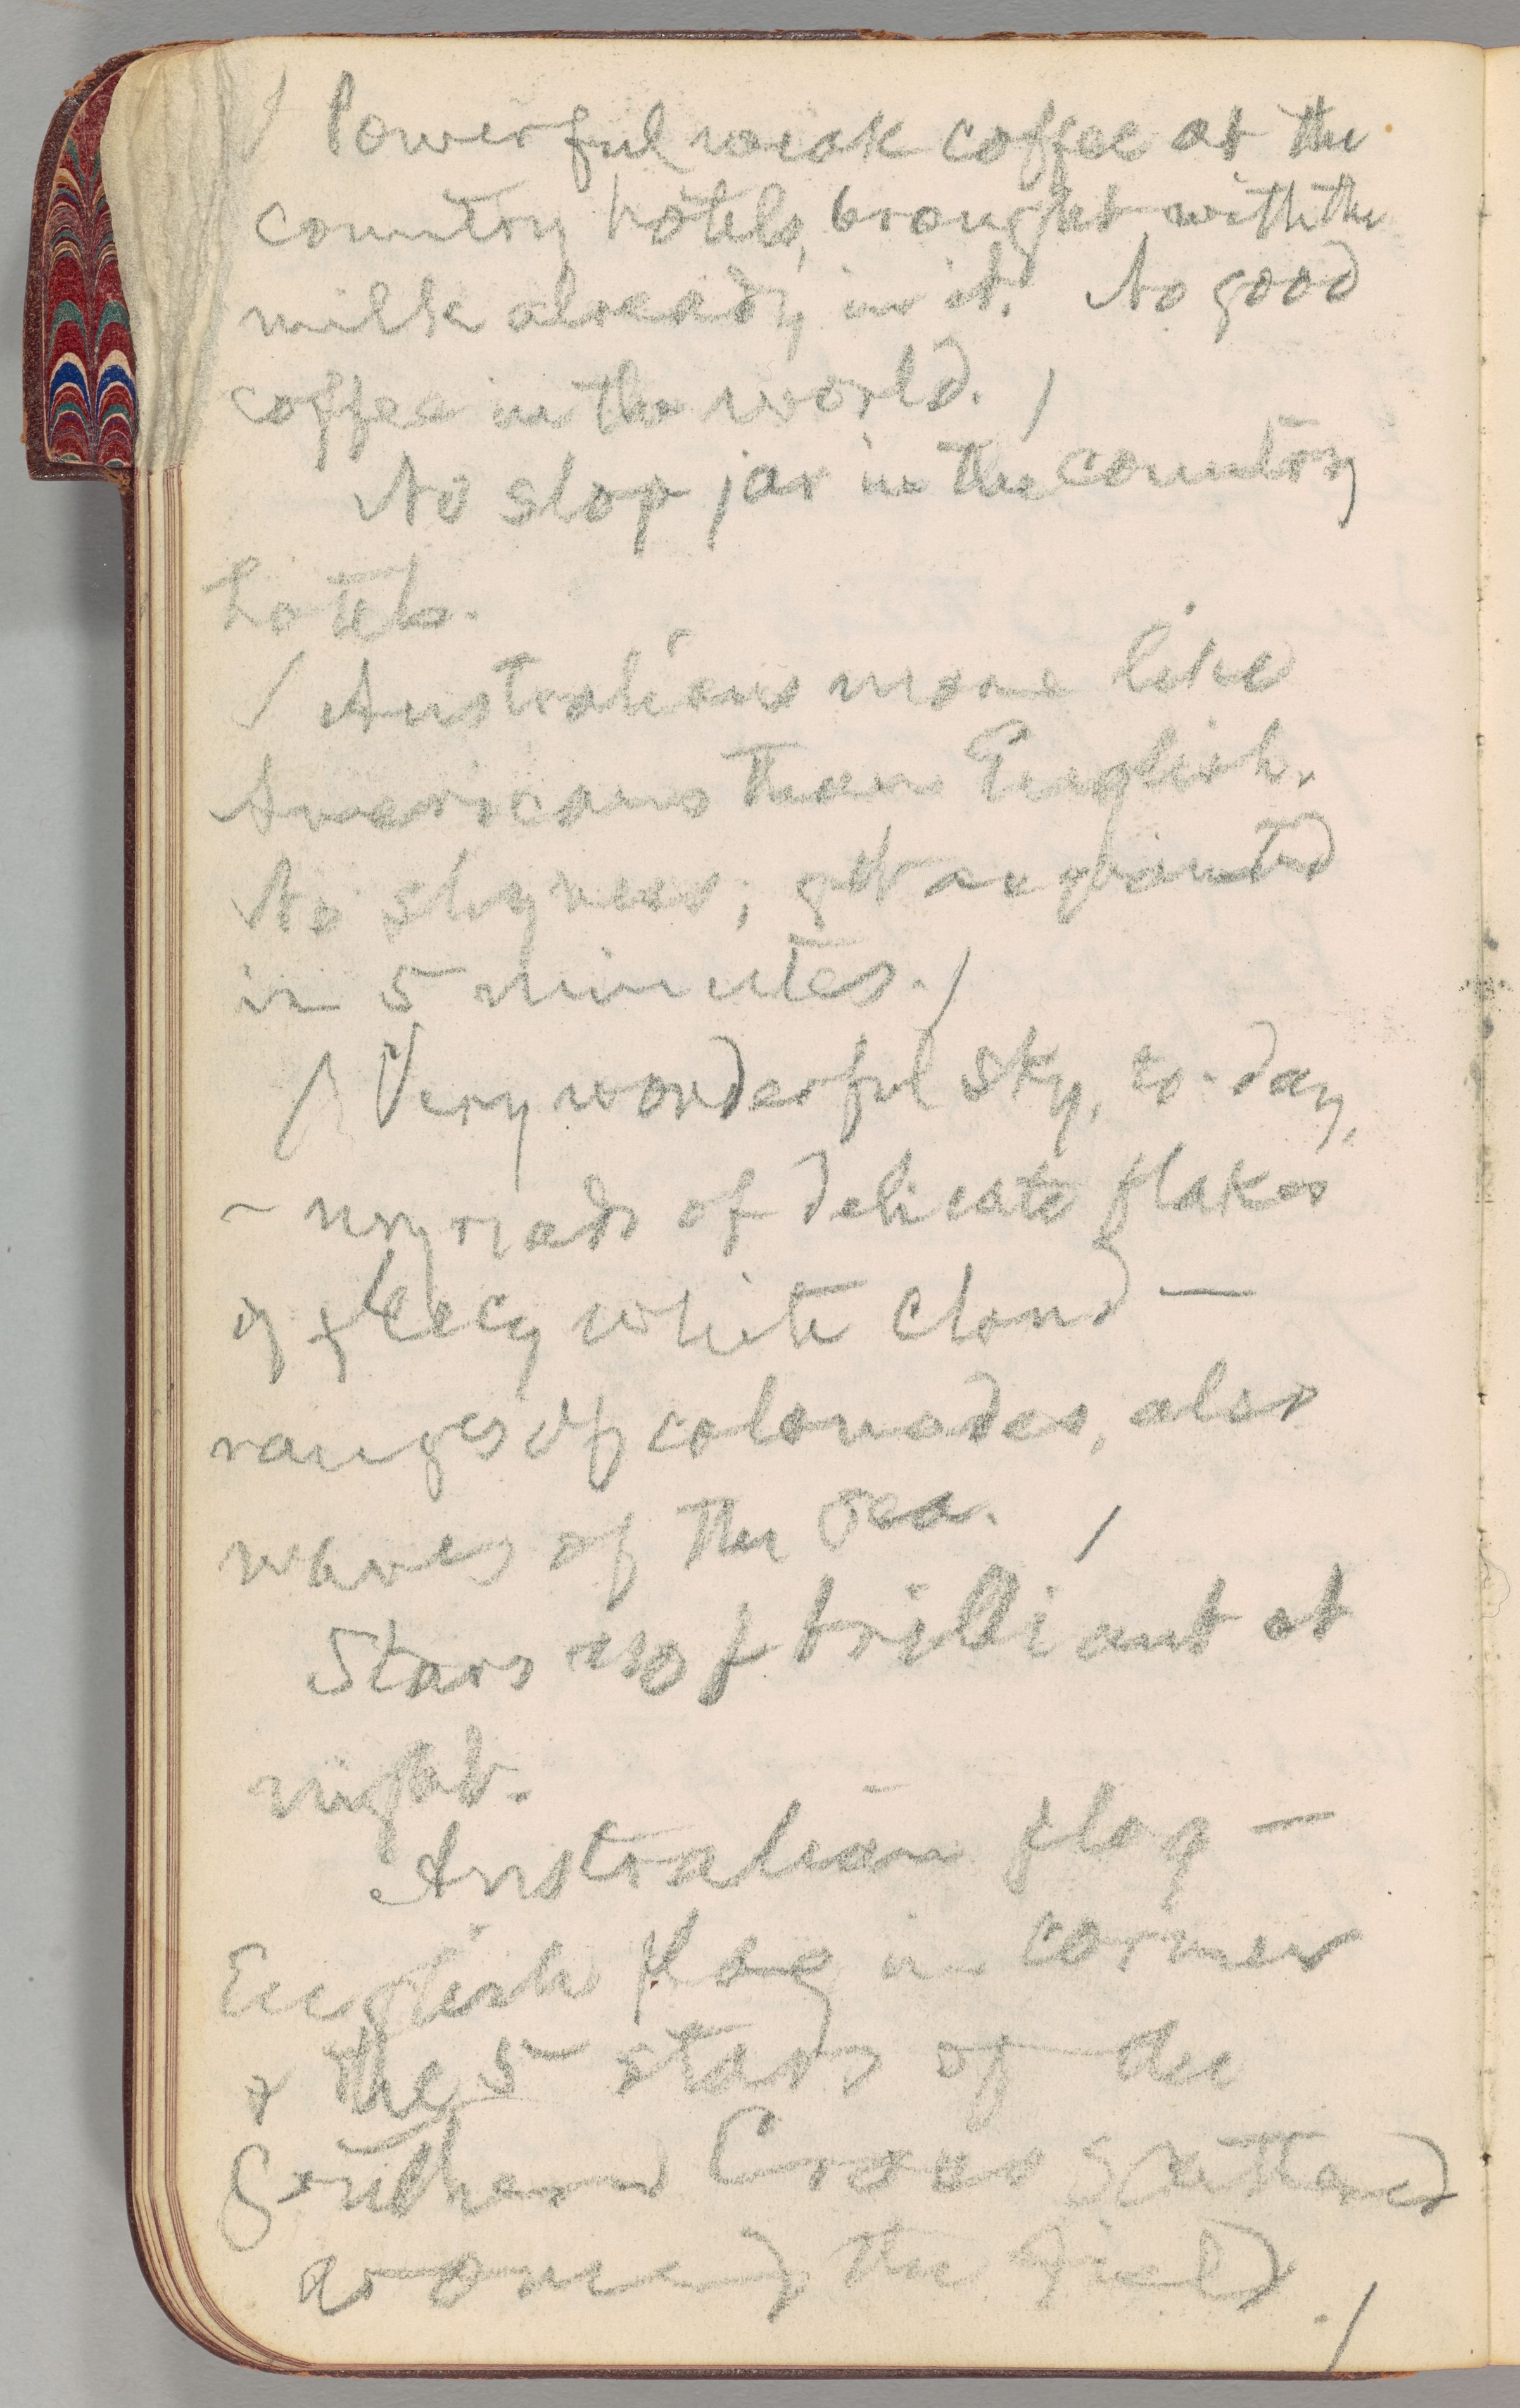 / Powerful weak coffee at the
country hotels, brought with the
milk already in it. No good
coffee in the world. /
No slop jar in the country
hotels.
/ Australians more like
Americans than English.
No shyness; get acquainted
in 5 minutes. /
/ Very wonderful sky, to-day,
– myriads of delicate flakes
of fleecy white cloud —
ranges of colonades, also
waves of the sea. /
Stars brilliant at
night.
Australian flag —
English flag in corner
& the 5 stars of the
Southern Cross scattered
around the field. /